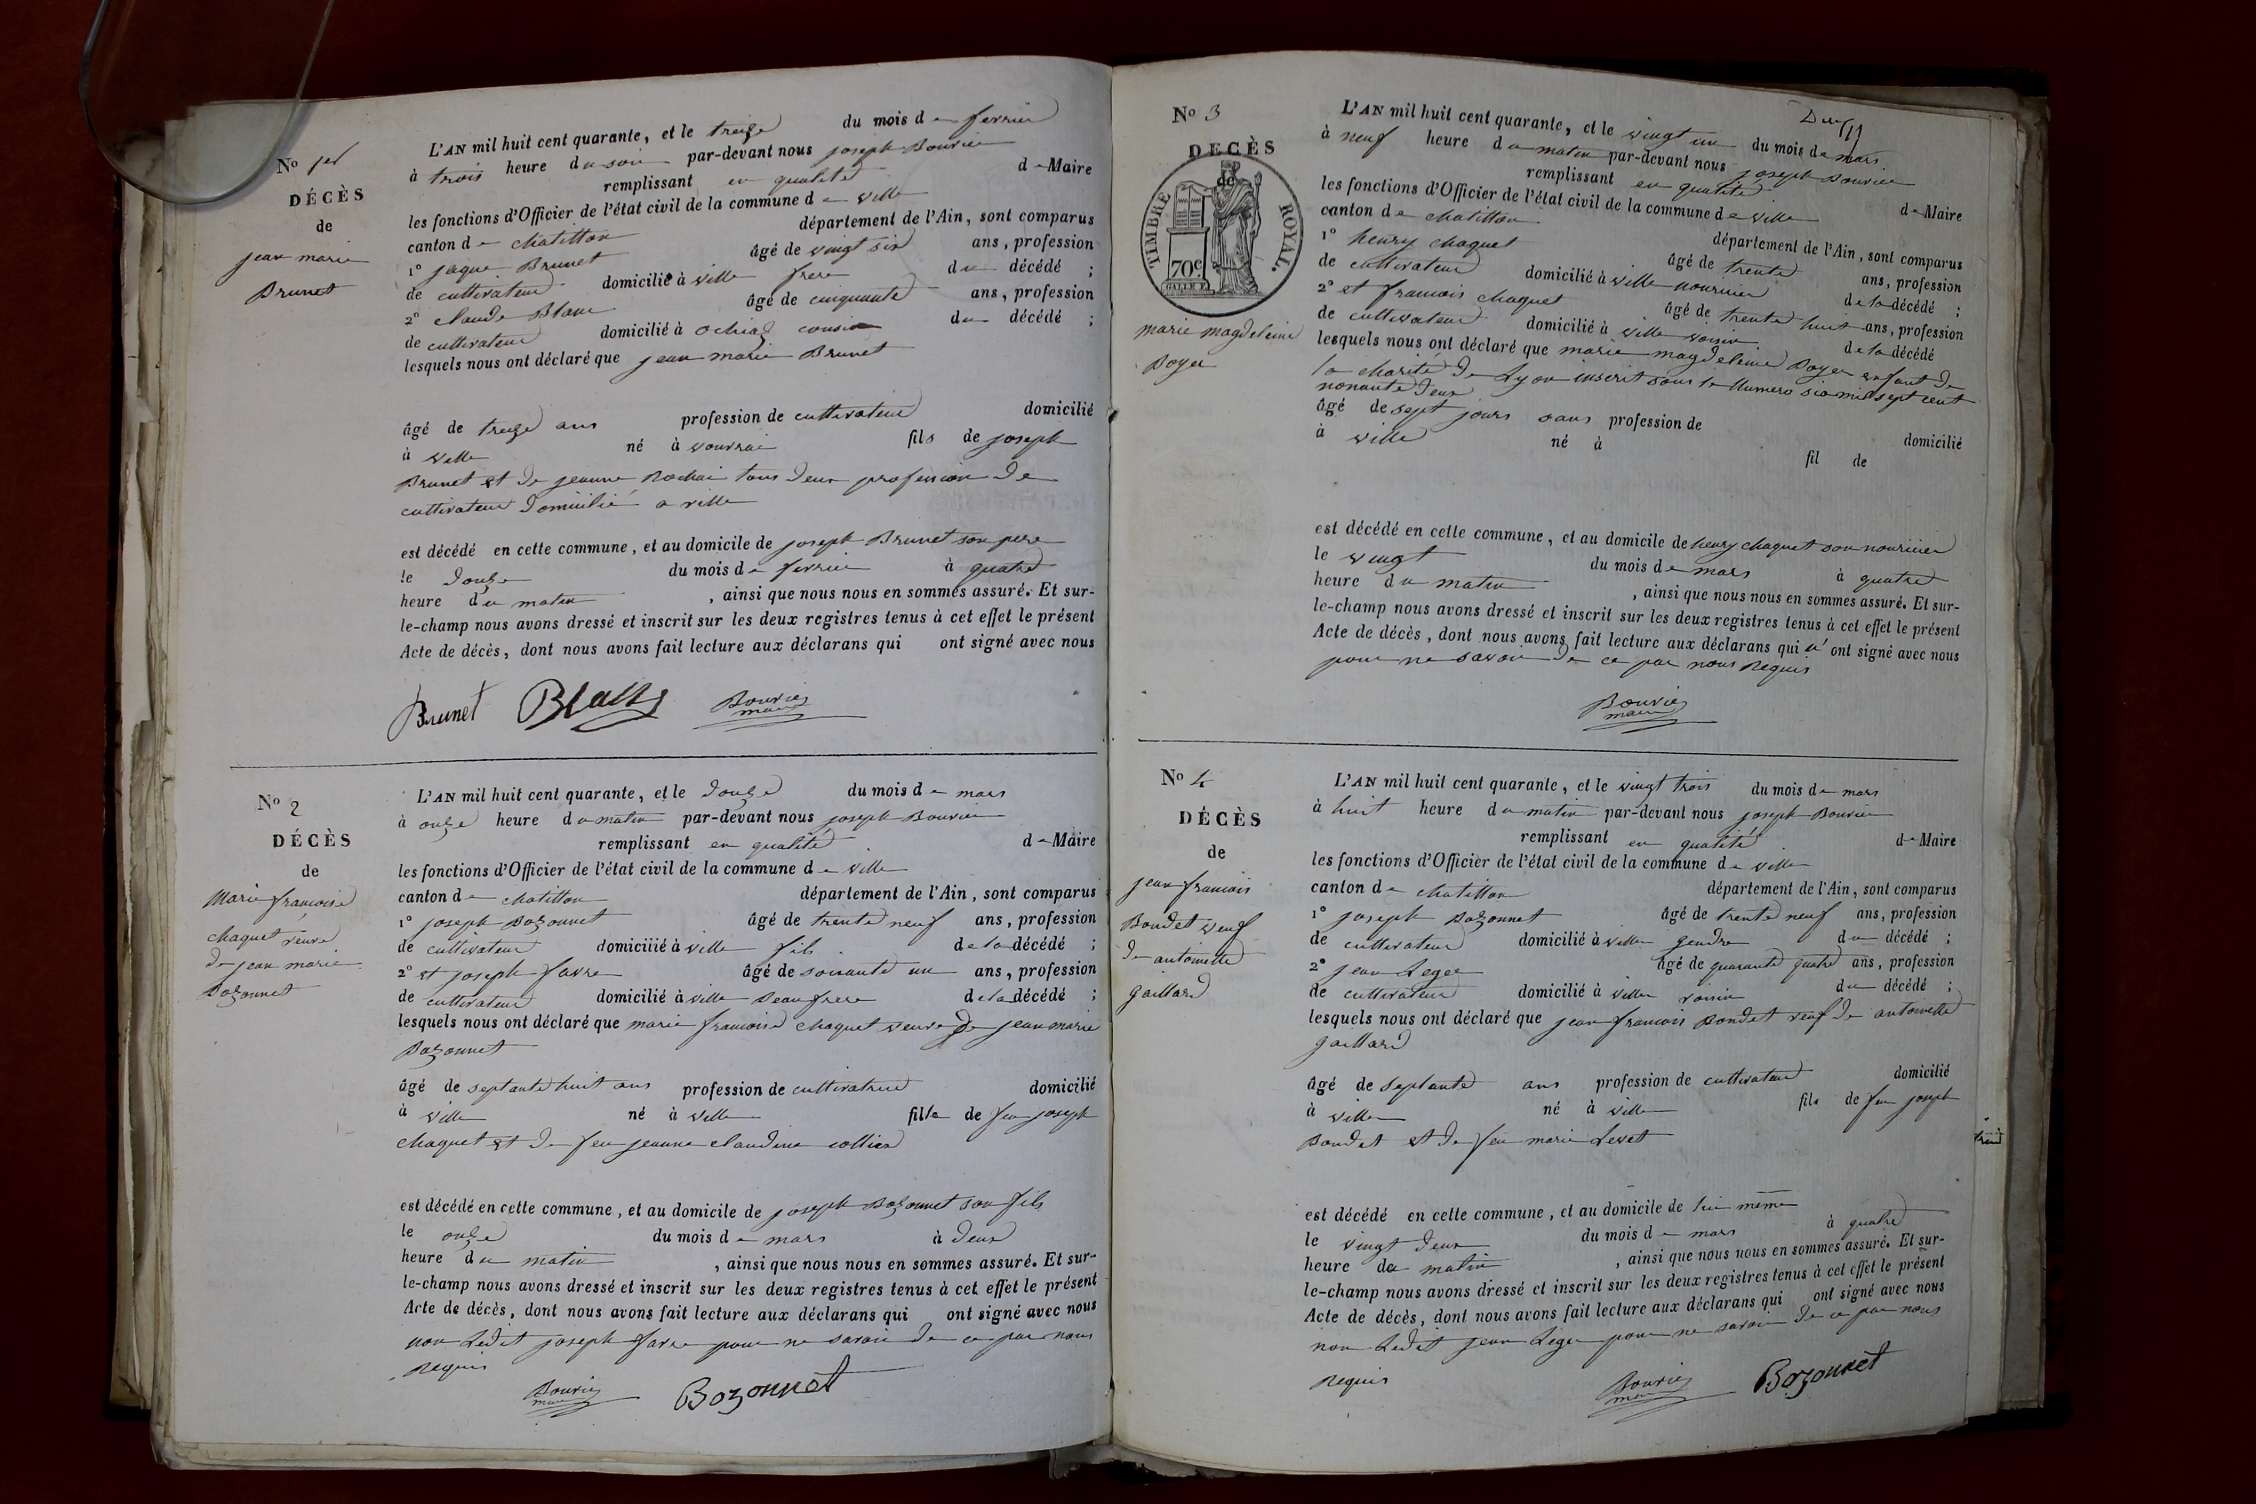 No 1er
DÉCÈS
de
jean marie
Brunet
L'AN mil huit cent quarante, et le treize du mois de fevrier
à trois heure du soir par-devant nous joseph Bouvier
remplissant en qualité de Maire
les fonctions d'Officier de l'état civil de la commune de ville
canton de chatillon département de l'Ain, sont comparus
1° jaque Brunet âgé de vingt six ans, profession
de cultivateur domicilié à ville frere du décédé ;
2° claude Blanc âgé de cinquante ans, profession
de cultivateur domicilié à ochiaz cousin du décédé ;
lesquels nous ont déclaré que jean marie Brunet
âgé de treize ans profession de cultivateur domicilié
à ville né à vouvrai fils de joseph
Brunet et de jeanne Rochai tous deux profession de
cultivateur domicilié a ville
est décédé en cette commune, et au domicile de joseph Brunet son pere
le douze du mois de fevrier à quatre
heure du matin , ainsi que nous nous en sommes assuré. Et sur-
le-champ nous avons dressé et inscrit sur les deux registres tenus à cet effet le présent
Acte de décès, dont nous avons fait lecture aux déclarans qui ont signé avec nous
Brunet Blanc Bouvier
maire
No 2
DÉCÈS
de
Marie francoise
chaquet veuve
de jean marie
Bozonnet
L'AN mil huit cent quarante, et le douze du mois de mars
à onze heure du matin par-devant nous joseph Bouvier
remplissant en qualité de Maire
les fonctions d'Officier de l'état civil de la commune de ville
canton de chatillon département de l'Ain, sont comparus
1° joseph Bozonnet âgé de trente neuf ans, profession
de cultivateur domicilié à ville fils de la décédé ;
2° et joseph favre âgé de soixante un ans, profession
de cultivateur domicilié à ville Beau frere de la décédé ;
lesquels nous ont déclaré que marie francoise chaquet veuve de jean marie
Bozonnet
âgé de septante huit ans profession de cultivatrice domicilié
à ville né à ville fille de feu joseph
chaquet et de feu jeanne claudine collier
est décédé en cette commune, et au domicile de joseph Bozonnet son fils
le onze du mois de mars à deux
heure du matin , ainsi que nous nous en sommes assuré. Et sur-
le-champ nous avons dressé et inscrit sur les deux registres tenus à cet effet le présent
Acte de décès, dont nous avons fait lecture aux déclarans qui ont signé avec nous
non Ledit joseph favre pour ne savoir de ce par nous
Requis
Bouvier
maire Bozonnet
Deux
No 3
DECÈS
de
TIMBRE ROYAL.
70c.
marie magdeleine
Boyer
L'AN mil huit cent quarante, et le vingt un du mois de mars
à neuf heure du matin par-devant nous joseph Bouvier
remplissant en qualité de Maire
les fonctions d'Officier de l'état civil de la commune de ville
canton de chatillon département de l'Ain, sont comparus
1° henry chaquet âgé de trente ans, profession
de cultivateur domicilié à ville nourricier de la décédé ;
2° et francois chaquet âgé de trente huit ans, profession
de cultivateur domicilié à ville voisin de la décédé
lesquels nous ont déclaré que marie magdeleine Boyer enfant de
la charité de Lyon inscrit sous le Numero six mil sept cent
nonante deux
âgé de sept jours sans profession de domicilié
à ville né à fil de
est décédé en cette commune, et au domicile de henry chaquet son nourricier
le vingt du mois de mars à quatre
heure du matin , ainsi que nous nous en sommes assuré. Et sur-
le-champ nous avons dressé et inscrit sur les deux registres tenus à cet effet le présent
Acte de décès, dont nous avons fait lecture aux déclarans qui ont signé avec nous
pour ne savoir de ce par nous Requis
Bouvier
maire
No 4
DÉCÈS
de
jean francois
Bondet veuf
de antoinette
gaillard
L'AN mil huit cent quarante, et le vingt trois du mois de mars
à huit heure du matin par-devant nous joseph Bouvier
remplissant en qualité de Maire
les fonctions d'Officier de l'état civil de la commune de ville
canton de chatillon département de l'Ain, sont comparus
1° joseph Bozonnet âgé de trente neuf ans, profession
de cultivateur domicilié à ville gendre du décédé ;
2° jean Leger âgé de quarante quatre ans, profession
de cultivateur domicilié à ville voisin du décédé ;
lesquels nous ont déclaré que jean francois Bondet veuf de antoinette
gaillard
âgé de Septante ans profession de cultivateur domicilié
à ville né à ville fils de feu joseph
Bondet et de feu marie Levet
est décédé en cette commune, et au domicile de lui même
le vingt deux du mois de mars à quatre
heure du matin , ainsi que nous nous en sommes assuré. Et sur-
le-champ nous avons dressé et inscrit sur les deux registres tenus à cet effet le présent
Acte de décès, dont nous avons fait lecture aux déclarans qui ont signé avec nous
non Ledit jean Leger pour ne savoir de ce par nous
Requis
Bouvier
maire Bozonnet